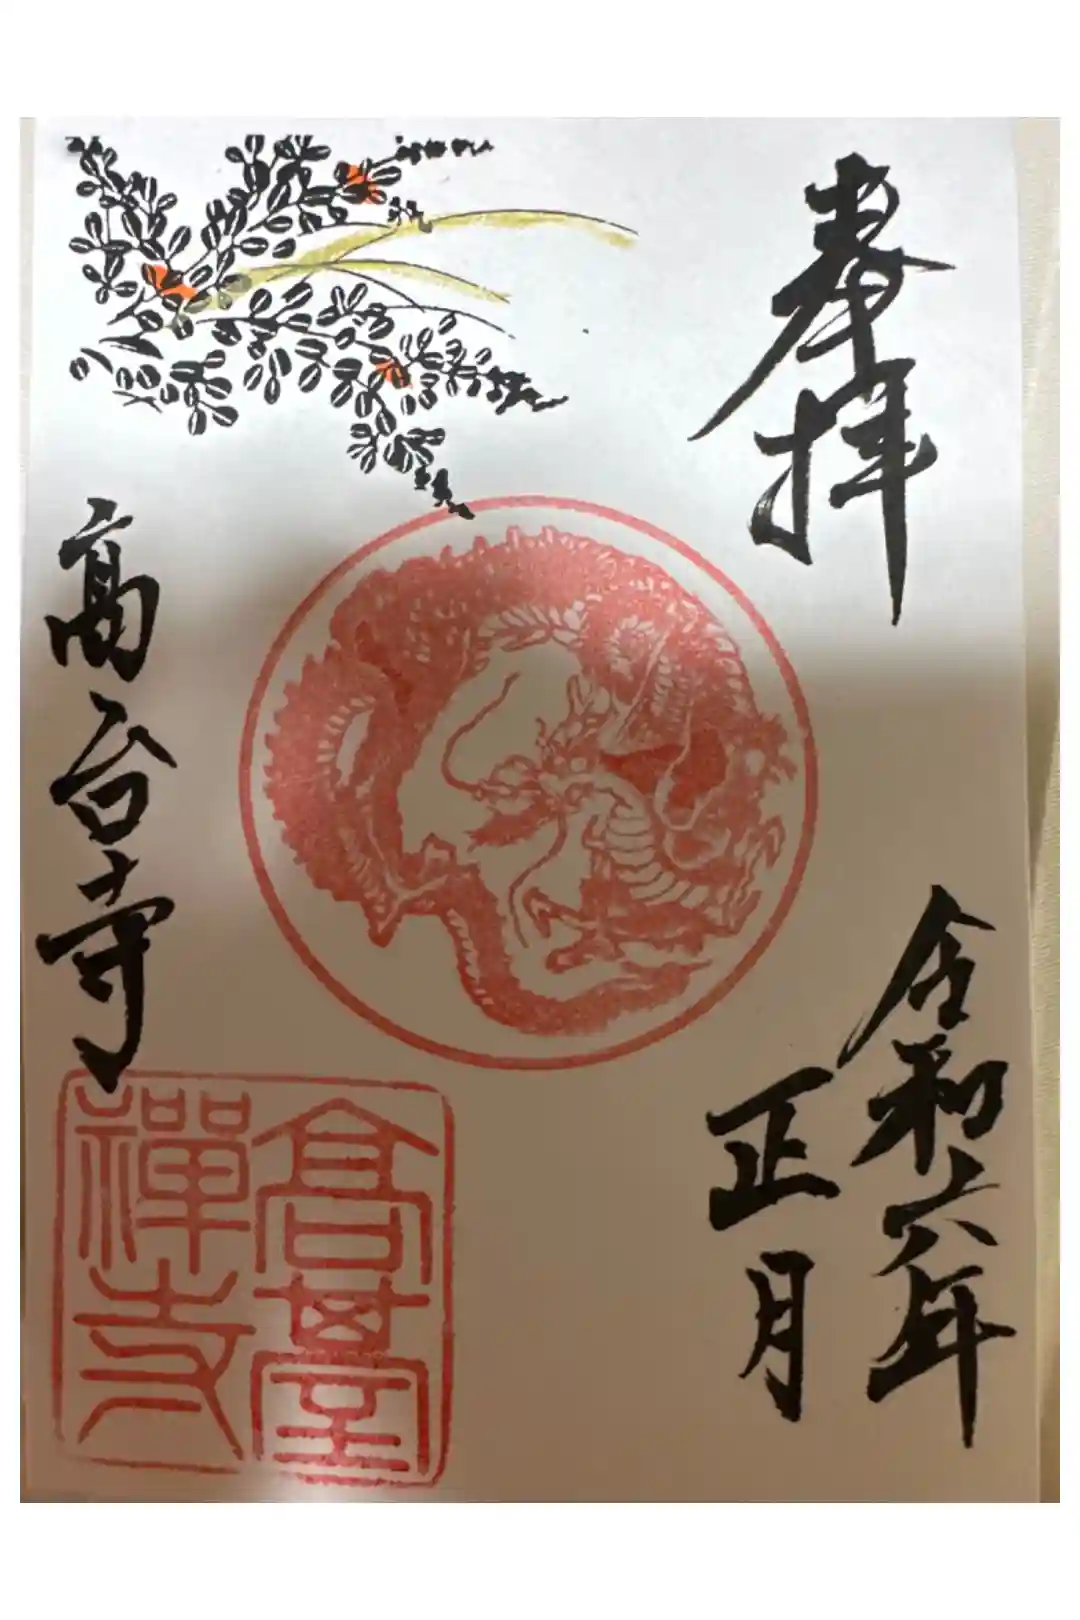 奉拝
令和六年
正月
高台寺
高臺
禪寺